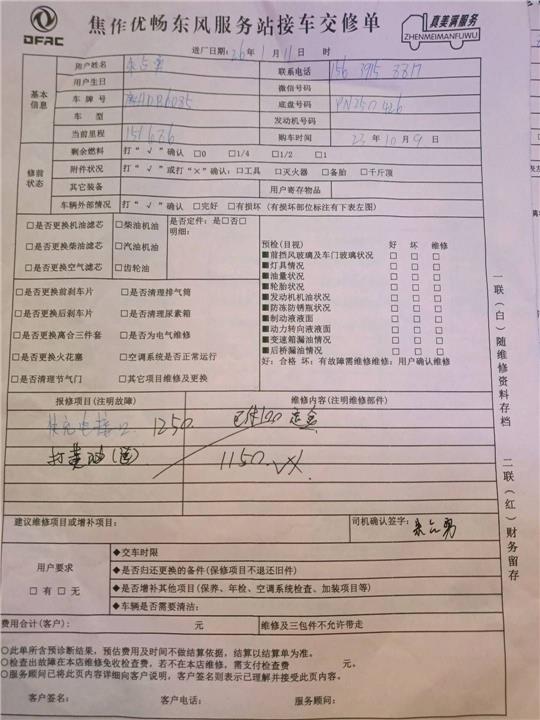 DFAC
焦作优畅东风服务站接车交修单
真美满服务
ZHENMEIMANFUWU
进厂日期:26年1月11日 时
基本信息
用户姓名
联系电话
用户生日
微信号码
车牌号
底盘号码
车型
发动机号码
当前里程 151686
购车时间 23年10月9日
修前状态
剩余燃料 打“√”确认 □0 □1/4 □1/2 □1
附件状况 打“√”或打“×”确认:□工具 □灭火器 □备胎 □千斤顶
其它装备 用户寄存物品
车辆外部情况 打“√”确认 □完好 □有损坏(有损坏部位标注有下表左图)
□是否更换机油滤芯 □柴油机油
□是否更换柴油滤芯 □汽油机油
□是否更换空气滤芯 □齿轮油
是否定件:是□否□
明细:
□是否更换前刹车片 □是否清理排气筒
□是否更换后刹车片 □是否清理尿素箱
□是否更换离合三件套 □是否为电气维修
□是否更换火花塞 □空调系统是否正常运行
□是否清理节气门 □其它项目维修及更换
预检(目视) 好 坏 维修
■前挡风玻璃及车门玻璃状况 □ □ □
■灯具情况 □ □ □
■油量状况 □ □ □
■轮胎状况 □ □ □
■发动机机油状况 □ □ □
■防冻防锈瓶状况 □ □ □
■制动液液面 □ □ □
■动力转向液液面 □ □ □
■变速箱漏油情况 □ □ □
■后桥漏油情况 □ □ □
好:合格 坏:有故障需维修维修:用户确认维修
报修项目(注明故障) 维修内容(注明维修部件)
充电接口 1250
打黄油(送) 1150
建议维修项目或增补项目:
司机确认签字:
用户要求
□有□无
◆交车时限
◆是否归还更换的备件(保修项目不退还旧件)
◆是否增补其他项目(保养、年检、空调系统检查、加装项目等)
◆车辆是否需要清洁:
费用合计(客户): 元 维修及三包件不允许带走
○此单所含预诊断结果,预估费用及时间不做结算依据,结算以结算单为准。
○检查出故障在本店维修免收检查费,若不在本店维修,需支付检查费 元。
○服务顾问已将此页内容详细向客户说明,客户签名则表示已理解并接受此页内容。
客户签名: 客户电话: 服务顾问:
一联(白)随维修资料存档
二联(红)财务留存